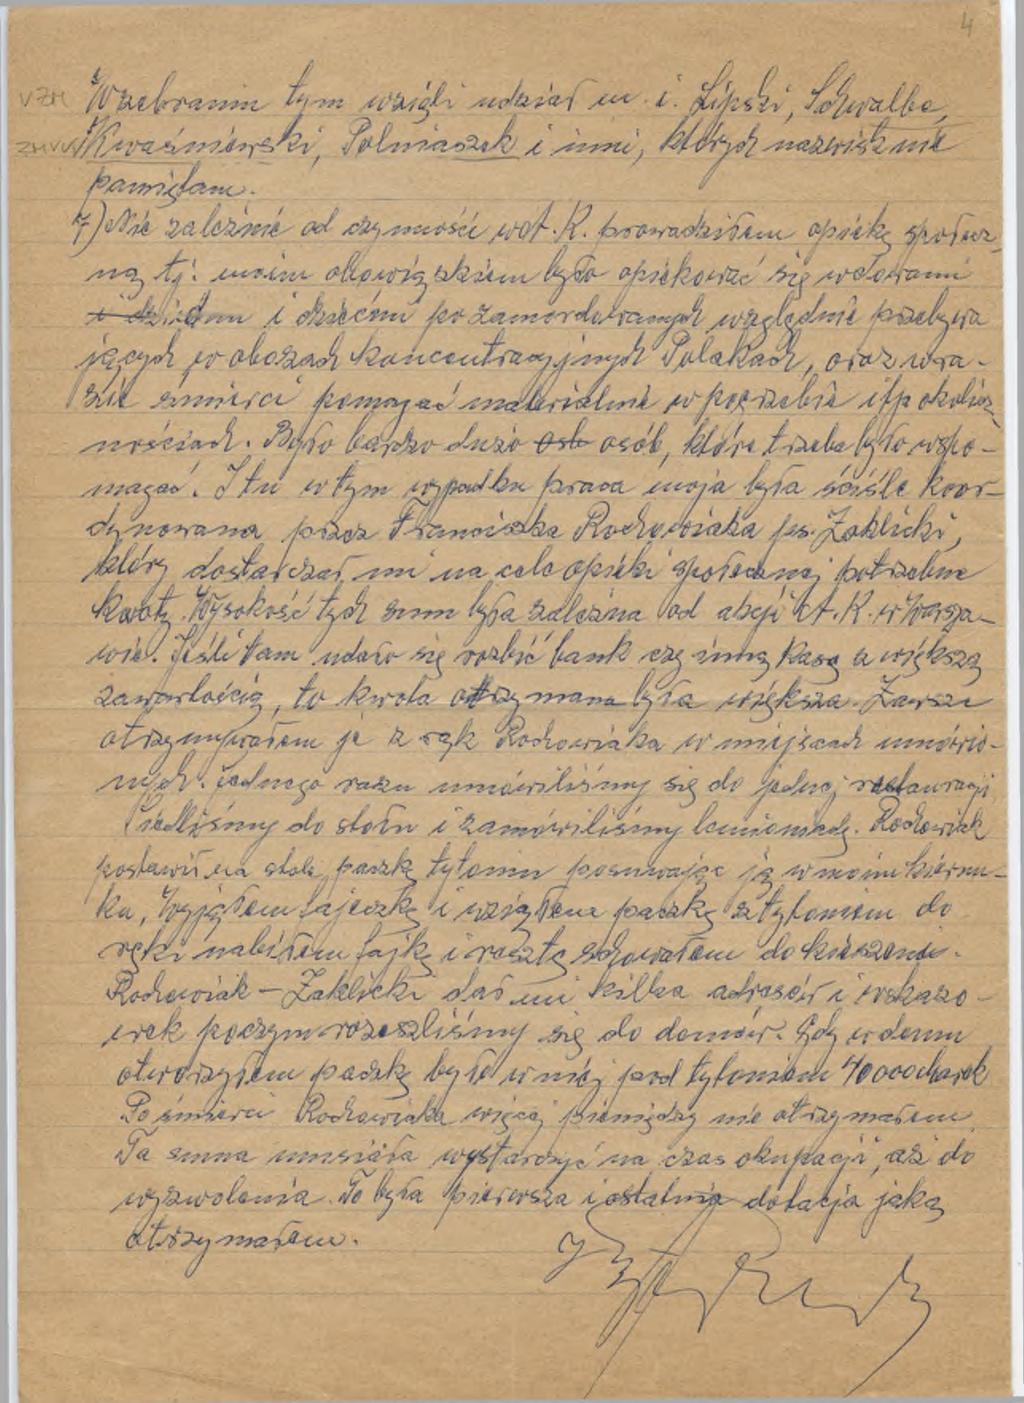 4
W zebraniu tym wzięli udział m. i. Lipski, Schwalbe,
Kwaśniewski, Polniaszek i inni, których nazwisk nie
pamiętam.
7) Nie zależnie od czynności w A.K. prowadziłem opiekę społecz-
ną tj. moim obowiązkiem było opiekować się wdowami
i dziećmi po zamordowanych względnie przebywa
jących w obozach koncentracyjnych Polakach, oraz w ra-
zie śmierci pomagać materialnie w pogrzebie itp okolicz
nościach. Było bardzo dużo osb osób, które trzeba było wspo-
magać. I tu w tym wypadku praca moja była ściśle koor-
dynowana przez Franciszka Rochowiaka ps. Zaklicki,
który dostarczał mi na cele opieki społecznej potrzebne
kwoty. Wysokość tych sum była zależna od akcji A.K. w Warsza-
wie. Jeśli tam udało się rozbić bank czy inną kasę o większą
zawartością, to kwota otrzymana była większa. Zawsze
otrzymywałem je z rąk Rochowiaka w miejscach umówio-
nych. Jednego razu umówiliśmy się do jednej restauracji
Siedliśmy do stołu i zamówiliśmy lemoniadę. Rochowiak
postawił na stole paczkę tytoniu posuwając ją w moim kierun-
ku, Wyjąłem fajeczkę i wziąłem paczkę z tytoniem do
ręki nabiłem fajkę i resztę schowałem do kieszeni.
Rochowiak – Zaklicki dał mi kilka adresów i wskazó-
wek poczym rozeszliśmy się do domów. Gdy w domu
otworzyłem paczkę było w niej pod tytoniem 40000 marek
Po śmierci Rochowiaka więcej pieniędzy nie otrzymałem.
Ta suma musiała wystarczyć na czas okupacji, aż do
wyzwolenia. To była pierwsza i ostatnia dotacja jaką
otrzymałem.